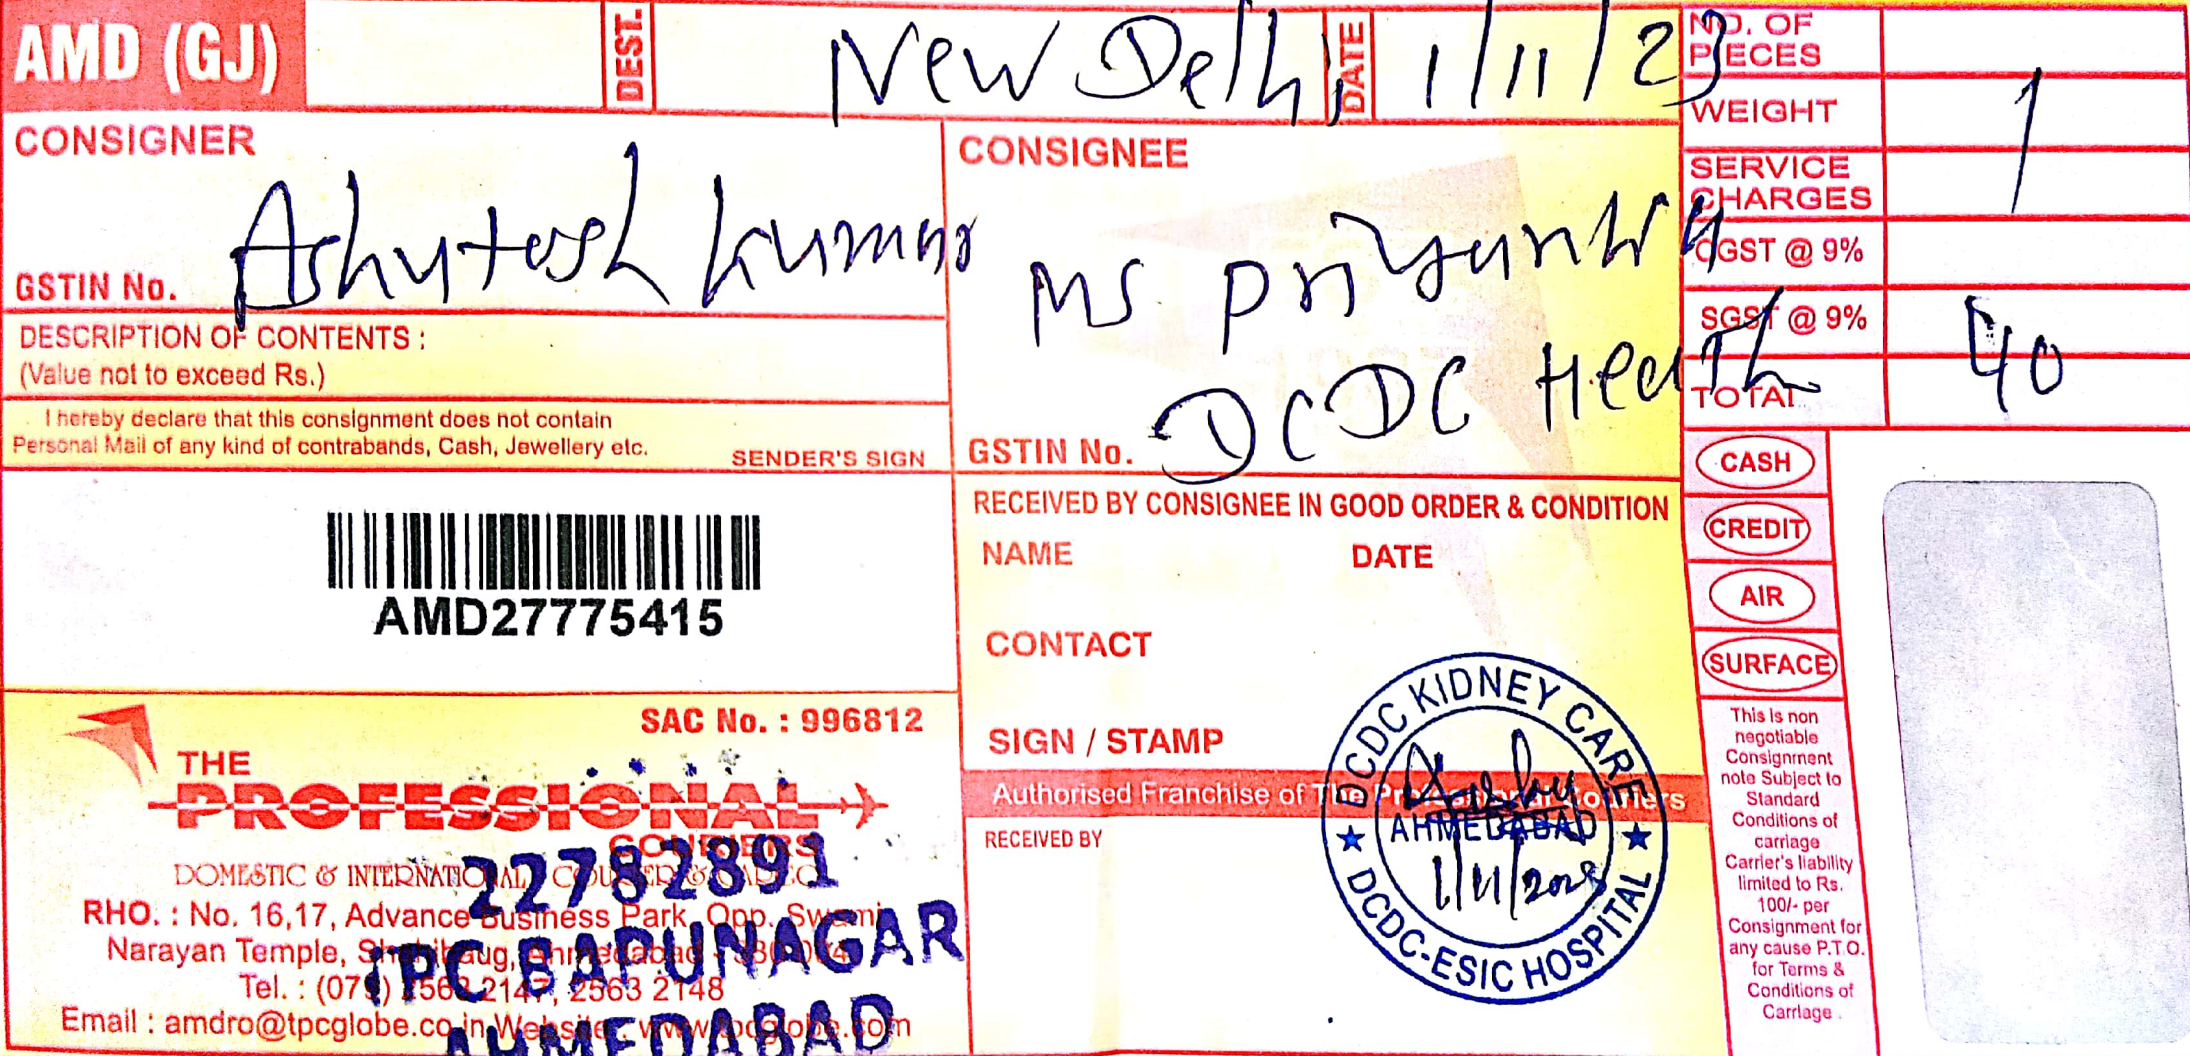 AMD (GJ)
DEST.
New Delhi
DATE
1/11/23
NO. OF
PIECES
WEIGHT
1
SERVICE
CHARGES
CGST @ 9%
SGST @ 9%
TOTAL
40
CONSIGNER
Ashutosh Kumar
GSTIN No.
DESCRIPTION OF CONTENTS :
(Value not to exceed Rs.)
I hereby declare that this consignment does not contain
Personal Mail of any kind of contrabands, Cash, Jewellery etc.
SENDER'S SIGN
CONSIGNEE
MS Priyanka
DCDC Health
GSTIN No.
AMD27775415
RECEIVED BY CONSIGNEE IN GOOD ORDER & CONDITION
NAME
DATE
CONTACT
SIGN / STAMP
Authorised Franchise of The Professional Couriers
RECEIVED BY
DCDC KIDNEY CARE
AHMEDABAD
1/11/2023
DCDC-ESIC HOSPITAL
CASH
CREDIT
AIR
SURFACE
This is non
negotiable
Consignment
note Subject to
Standard
Conditions of
carriage
Carrier's liability
limited to Rs.
100/- per
Consignment for
any cause P.T.O.
for Terms &
Conditions of
Carriage .
SAC No. : 996812
THE
PROFESSIONAL
COURIERS
DOMESTIC & INTERNATIONAL COURIER & CARGO
RHO. : No. 16,17, Advance Business Park, Opp. Swami
Narayan Temple, Shahibaug, Ahmedabad
Tel. : (079) 2563 2147, 2563 2148
Email : amdro@tpcglobe.co.in Website : www.tpcglobe.com
22782891
TPC BAPUNAGAR
AHMEDABAD